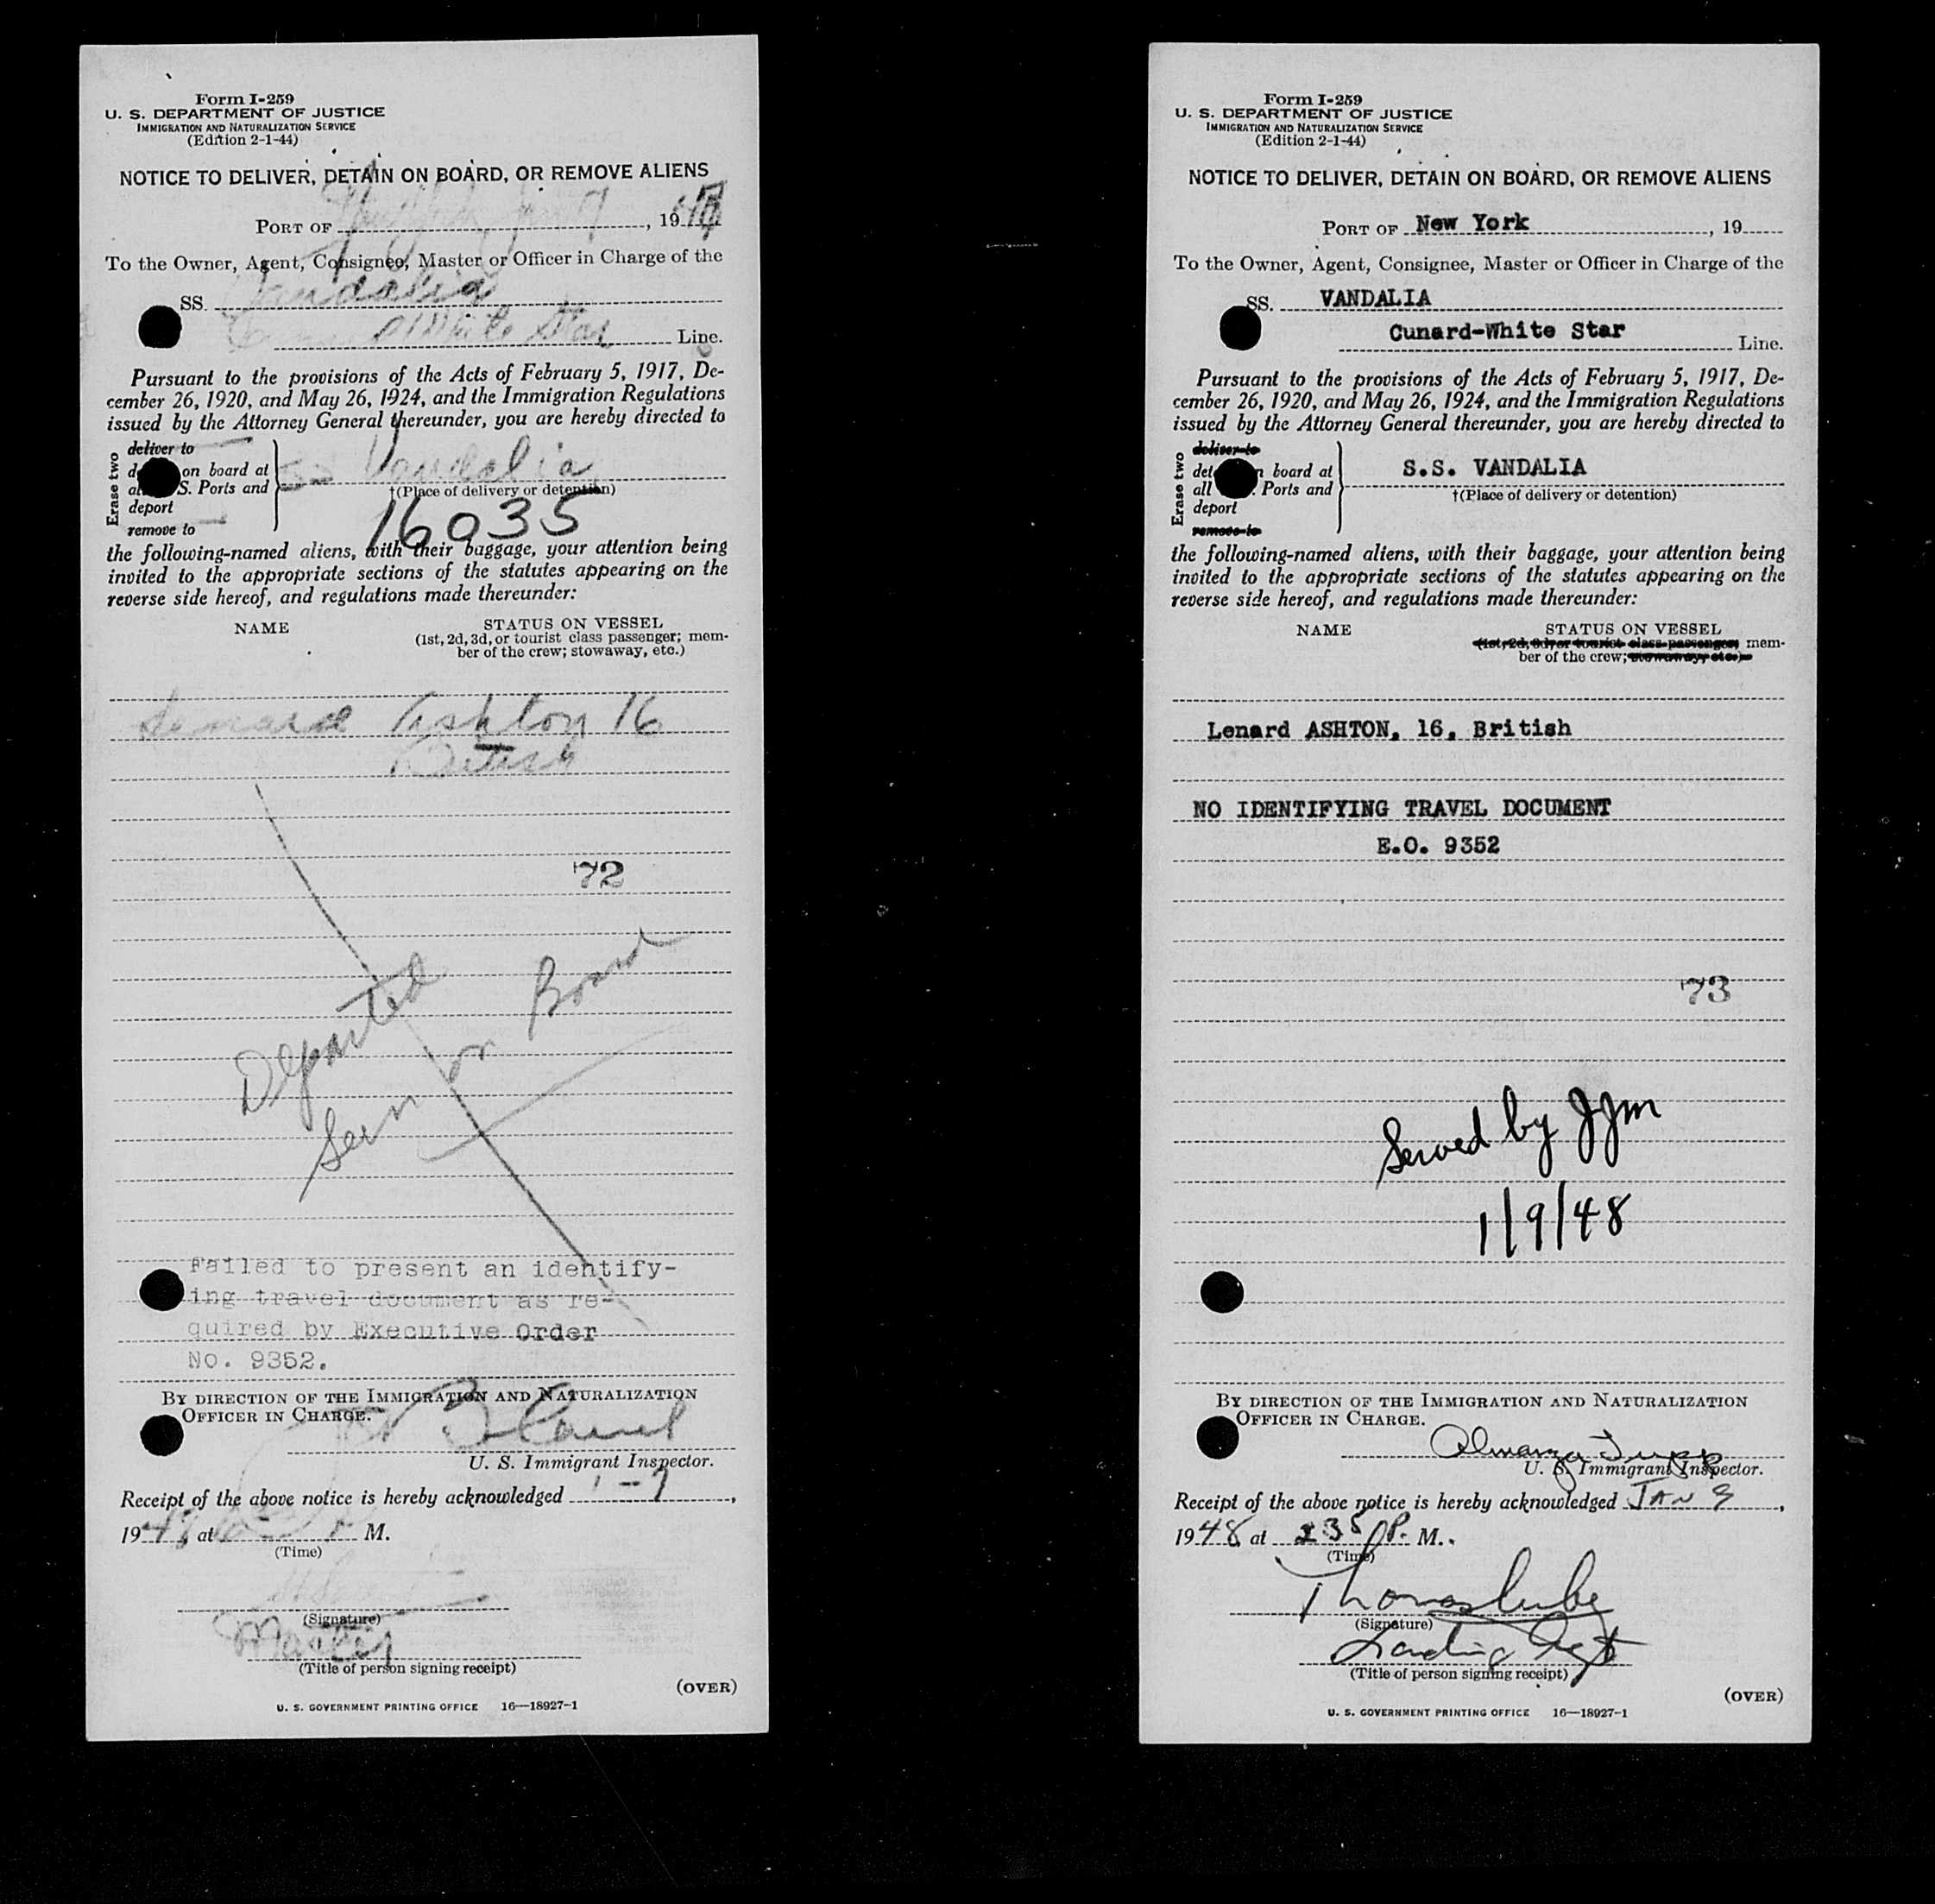 Form I-259
U. S. DEPARTMENT OF JUSTICE
IMMIGRATION AND NATURALIZATION SERVICE
(Edition 2-1-44)
NOTICE TO DELIVER, DETAIN ON BOARD, OR REMOVE ALIENS
PORT OF , 19
To the Owner, Agent, Consignee, Master or Officer in Charge of the
SS. Vandalia
White Star Line.
Pursuant to the provisions of the Acts of February 5, 1917, De-
cember 26, 1920, and May 26, 1924, and the Immigration Regulations
issued by the Attorney General thereunder, you are hereby directed to
Erase two
deliver to
on board at
S. Ports and
deport
remove to
SS Vandalia
†(Place of delivery or detention)
16035
the following-named aliens, with their baggage, your attention being
invited to the appropriate sections of the statutes appearing on the
reverse side hereof, and regulations made thereunder:
NAME STATUS ON VESSEL
(1st, 2d, 3d, or tourist class passenger; mem-
ber of the crew; stowaway, etc.)
Lenard Ashton 16
British
72
Departed
Seen on Board
Failed to present an identify-
ing travel document as re-
quired by Executive Order
No. 9352.
BY DIRECTION OF THE IMMIGRATION AND NATURALIZATION
OFFICER IN CHARGE.
U. S. Immigrant Inspector.
Receipt of the above notice is hereby acknowledged 1-7,
1948, at M.
(Time)
(Signature)
Master
(Title of person signing receipt)
(OVER)
U. S. GOVERNMENT PRINTING OFFICE 16—18927-1
Form I-259
U. S. DEPARTMENT OF JUSTICE
IMMIGRATION AND NATURALIZATION SERVICE
(Edition 2-1-44)
NOTICE TO DELIVER, DETAIN ON BOARD, OR REMOVE ALIENS
PORT OF New York, 19
To the Owner, Agent, Consignee, Master or Officer in Charge of the
SS. VANDALIA
Cunard-White Star Line.
Pursuant to the provisions of the Acts of February 5, 1917, De-
cember 26, 1920, and May 26, 1924, and the Immigration Regulations
issued by the Attorney General thereunder, you are hereby directed to
Erase two
deliver to
board at
all Ports and
deport
remove to
S.S. VANDALIA
†(Place of delivery or detention)
the following-named aliens, with their baggage, your attention being
invited to the appropriate sections of the statutes appearing on the
reverse side hereof, and regulations made thereunder:
NAME STATUS ON VESSEL
(1st, 2d, 3d, or tourist class passenger; mem-
ber of the crew; stowaway, etc.)
Lenard ASHTON, 16, British
NO IDENTIFYING TRAVEL DOCUMENT
E.O. 9352
73
Served by JJM
1/9/48
BY DIRECTION OF THE IMMIGRATION AND NATURALIZATION
OFFICER IN CHARGE.
Almanza Tupp
U. S. Immigrant Inspector.
Receipt of the above notice is hereby acknowledged JAN 9,
1948, at 235 P. M.
(Time)
Thomas
(Signature)
Landing Agt
(Title of person signing receipt)
(OVER)
U. S. GOVERNMENT PRINTING OFFICE 16—18927-1